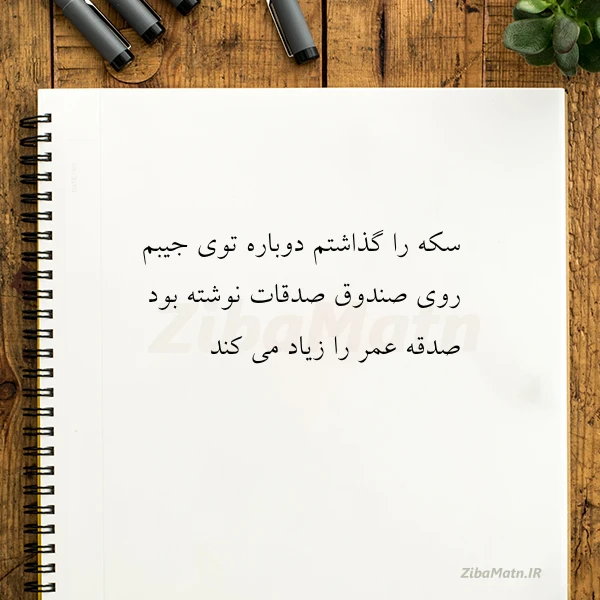 سکه را گذاشتم دوباره توی جیبم
روی صندوق صدقات نوشته بود
صدقه عمر را زیاد می کند
ZibaMatn
ZibaMatn.IR